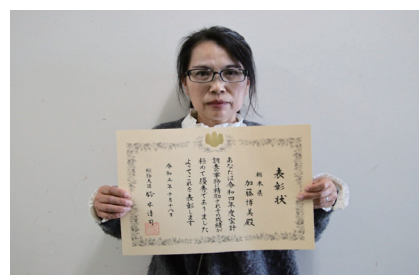 表彰状
栃木県
加藤博美殿
あなたは令和四年度会計
調査事務に精励されその成績が
極めて優秀でありました
よってこれを表彰します
令和五年十月十八日
総務大臣 鈴木淳司